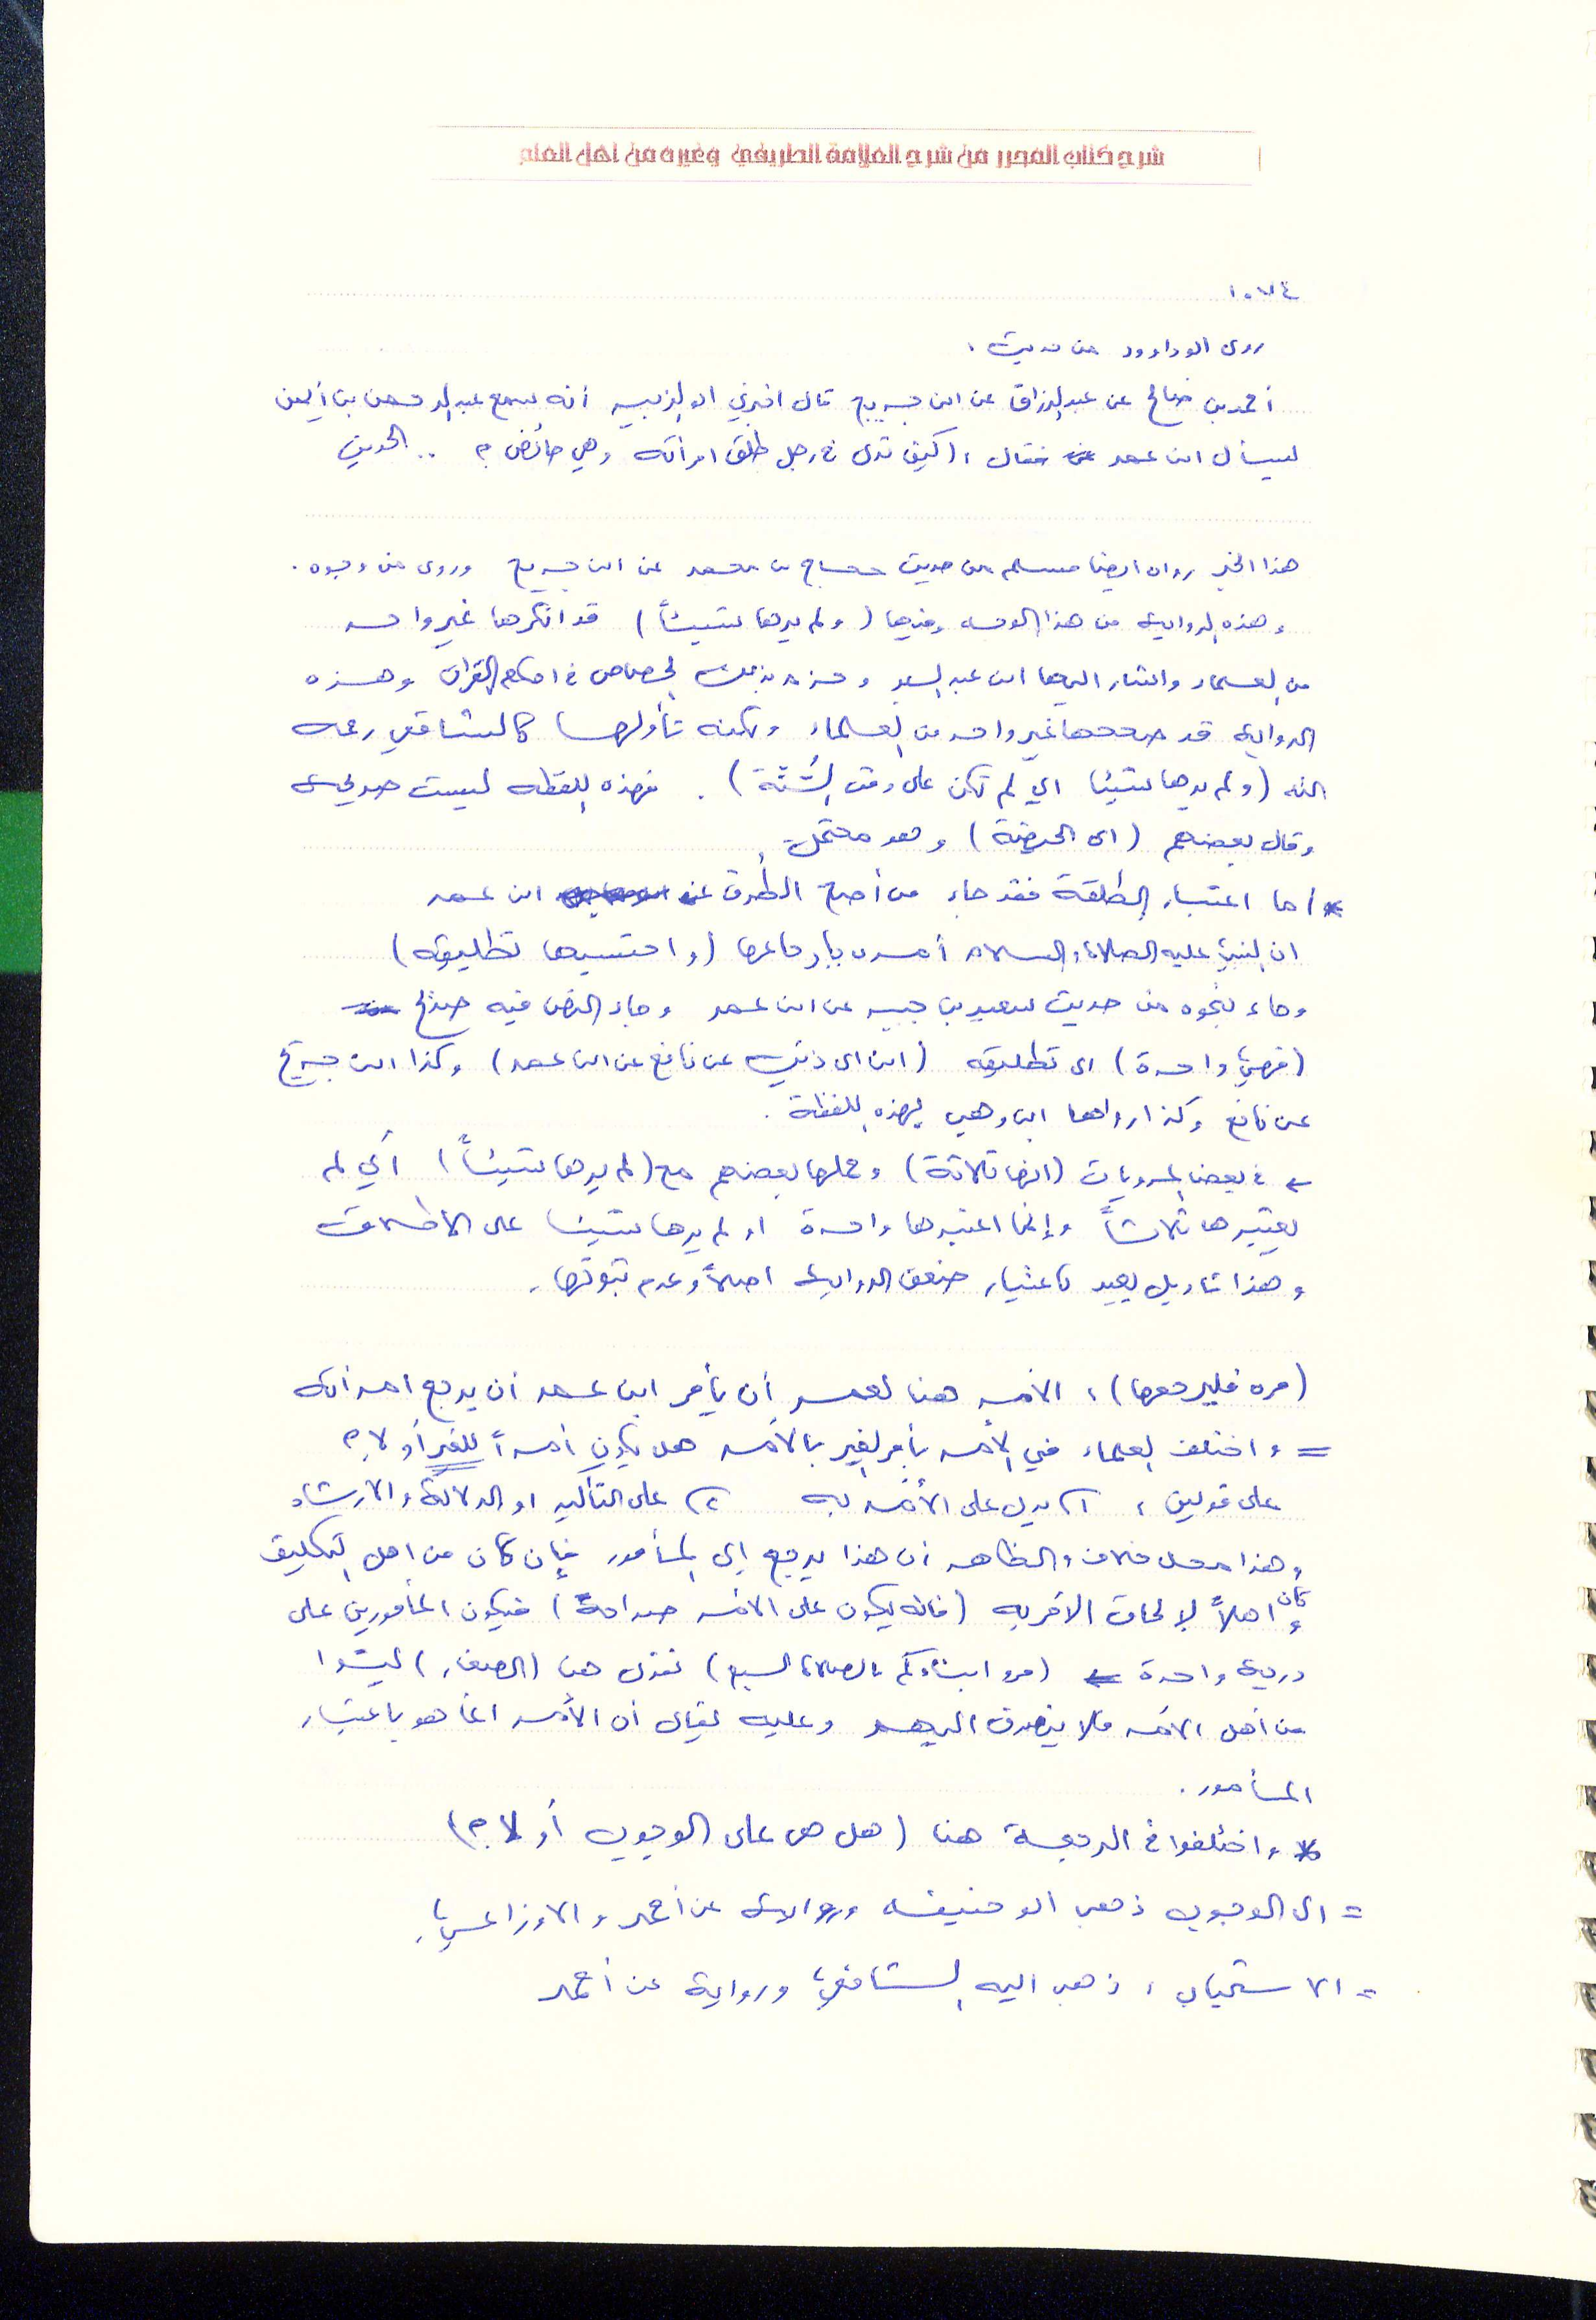 شرح كتاب المحرر من شرح العلامة الطريفي وغيره من اهل العلم
١٠٧٤
روى ابو داوود من حديث :
أحمد بن صالح عن عبدالرزاق عن ابن جريج قال اخبرني ابو الزبير أنه سمع عبدالرحمن بن أيمن
يسأل ابن عمر فقال : (كيف ترى في رجل طلق امرأته وهي حائض ؟ .. الحديث
هذا الخبر رواه ايضا مسلم من حديث حجاج بن محمد عن ابن جريج وروى من وجوه .
وهذه الرواية من هذا الوجه وفيها (ولم يرها شيئاً) قد انكرها غير واحد
من العلماء واشار اليها ابن عبد البر وجزم بذلك الجصاص في احكام القرآن وهذه
الرواية قد صححها غير واحد من العلماء ولكنه تأولها كالشافعي رحمه
الله (ولم يرها شيئا اي لم تكن على وفق السُنّة) . فهذه اللفظه ليست صريحة
وقال بعضهم (اى الحيضة) وهو محتمل .
* أما اعتبار الطلقة فقد جاء من أصح الطُرق عن ابن عمر
ان النبي عليه الصلاة والسلام أمره بإرجاعها (واحتسبها تطليقه)
وجاء نحوه من حديث سعيد بن جبير عن ابن عمر وجاء النص فيه صريح
(فهي واحدة) اى تطليقه (ابن ابى ذئب عن نافع عن ابن عمر) وكذا ابن جريج
عن نافع وكذا رواها ابن وهب بهذه اللفظة .
← في بعض المرويات (انها ثلاثة) وحملها بعضهم مع (لم يرها شيئاً) أي لم
يعتبرها ثلاثاً وإنما اعتبرها واحدة او لم يرها شيئا على الاطلاق
وهذا تاويل بعيد باعتبار ضعف الرواية اصلاً وعدم ثبوتها .
(مره فليرجعها) : الأمر هنا لعمر أن يأمر ابن عمر أن يرجع امرأته
= واختلف العلماء في الأمر بأمر الغير بالأمر هل يكون أمراً للغير أو لا ؟
على قولين : ١) يدل على الأمر به ٢) على التأكيد او الدلالة والارشاد
وهذا محل خلاف والظاهر أن هذا يرجع الى المأمور فإن كان من اهل التكليف
وكان اهلاً لإلحاق الأمر به (فانه يكون على الأمر صراحةً) فيكون المأمورين على
درجة واحدة ← (مروا ابناءكم بالصلاة لسبع) نقول هنا (الصغار) ليسوا
من أهل الأمر فلا ينصرف اليهم وعليه يقال أن الأمر انما هو باعتبار
المأمور .
* واختلفوا في الرجعة هنا (هل هى على الوجوب أو لا ؟)
= الى الوجوب ذهب ابو حنيفه ورواية عن أحمد والاوزاعي .
= الاستحباب : ذهب اليه الشافعي ورواية عن أحمد